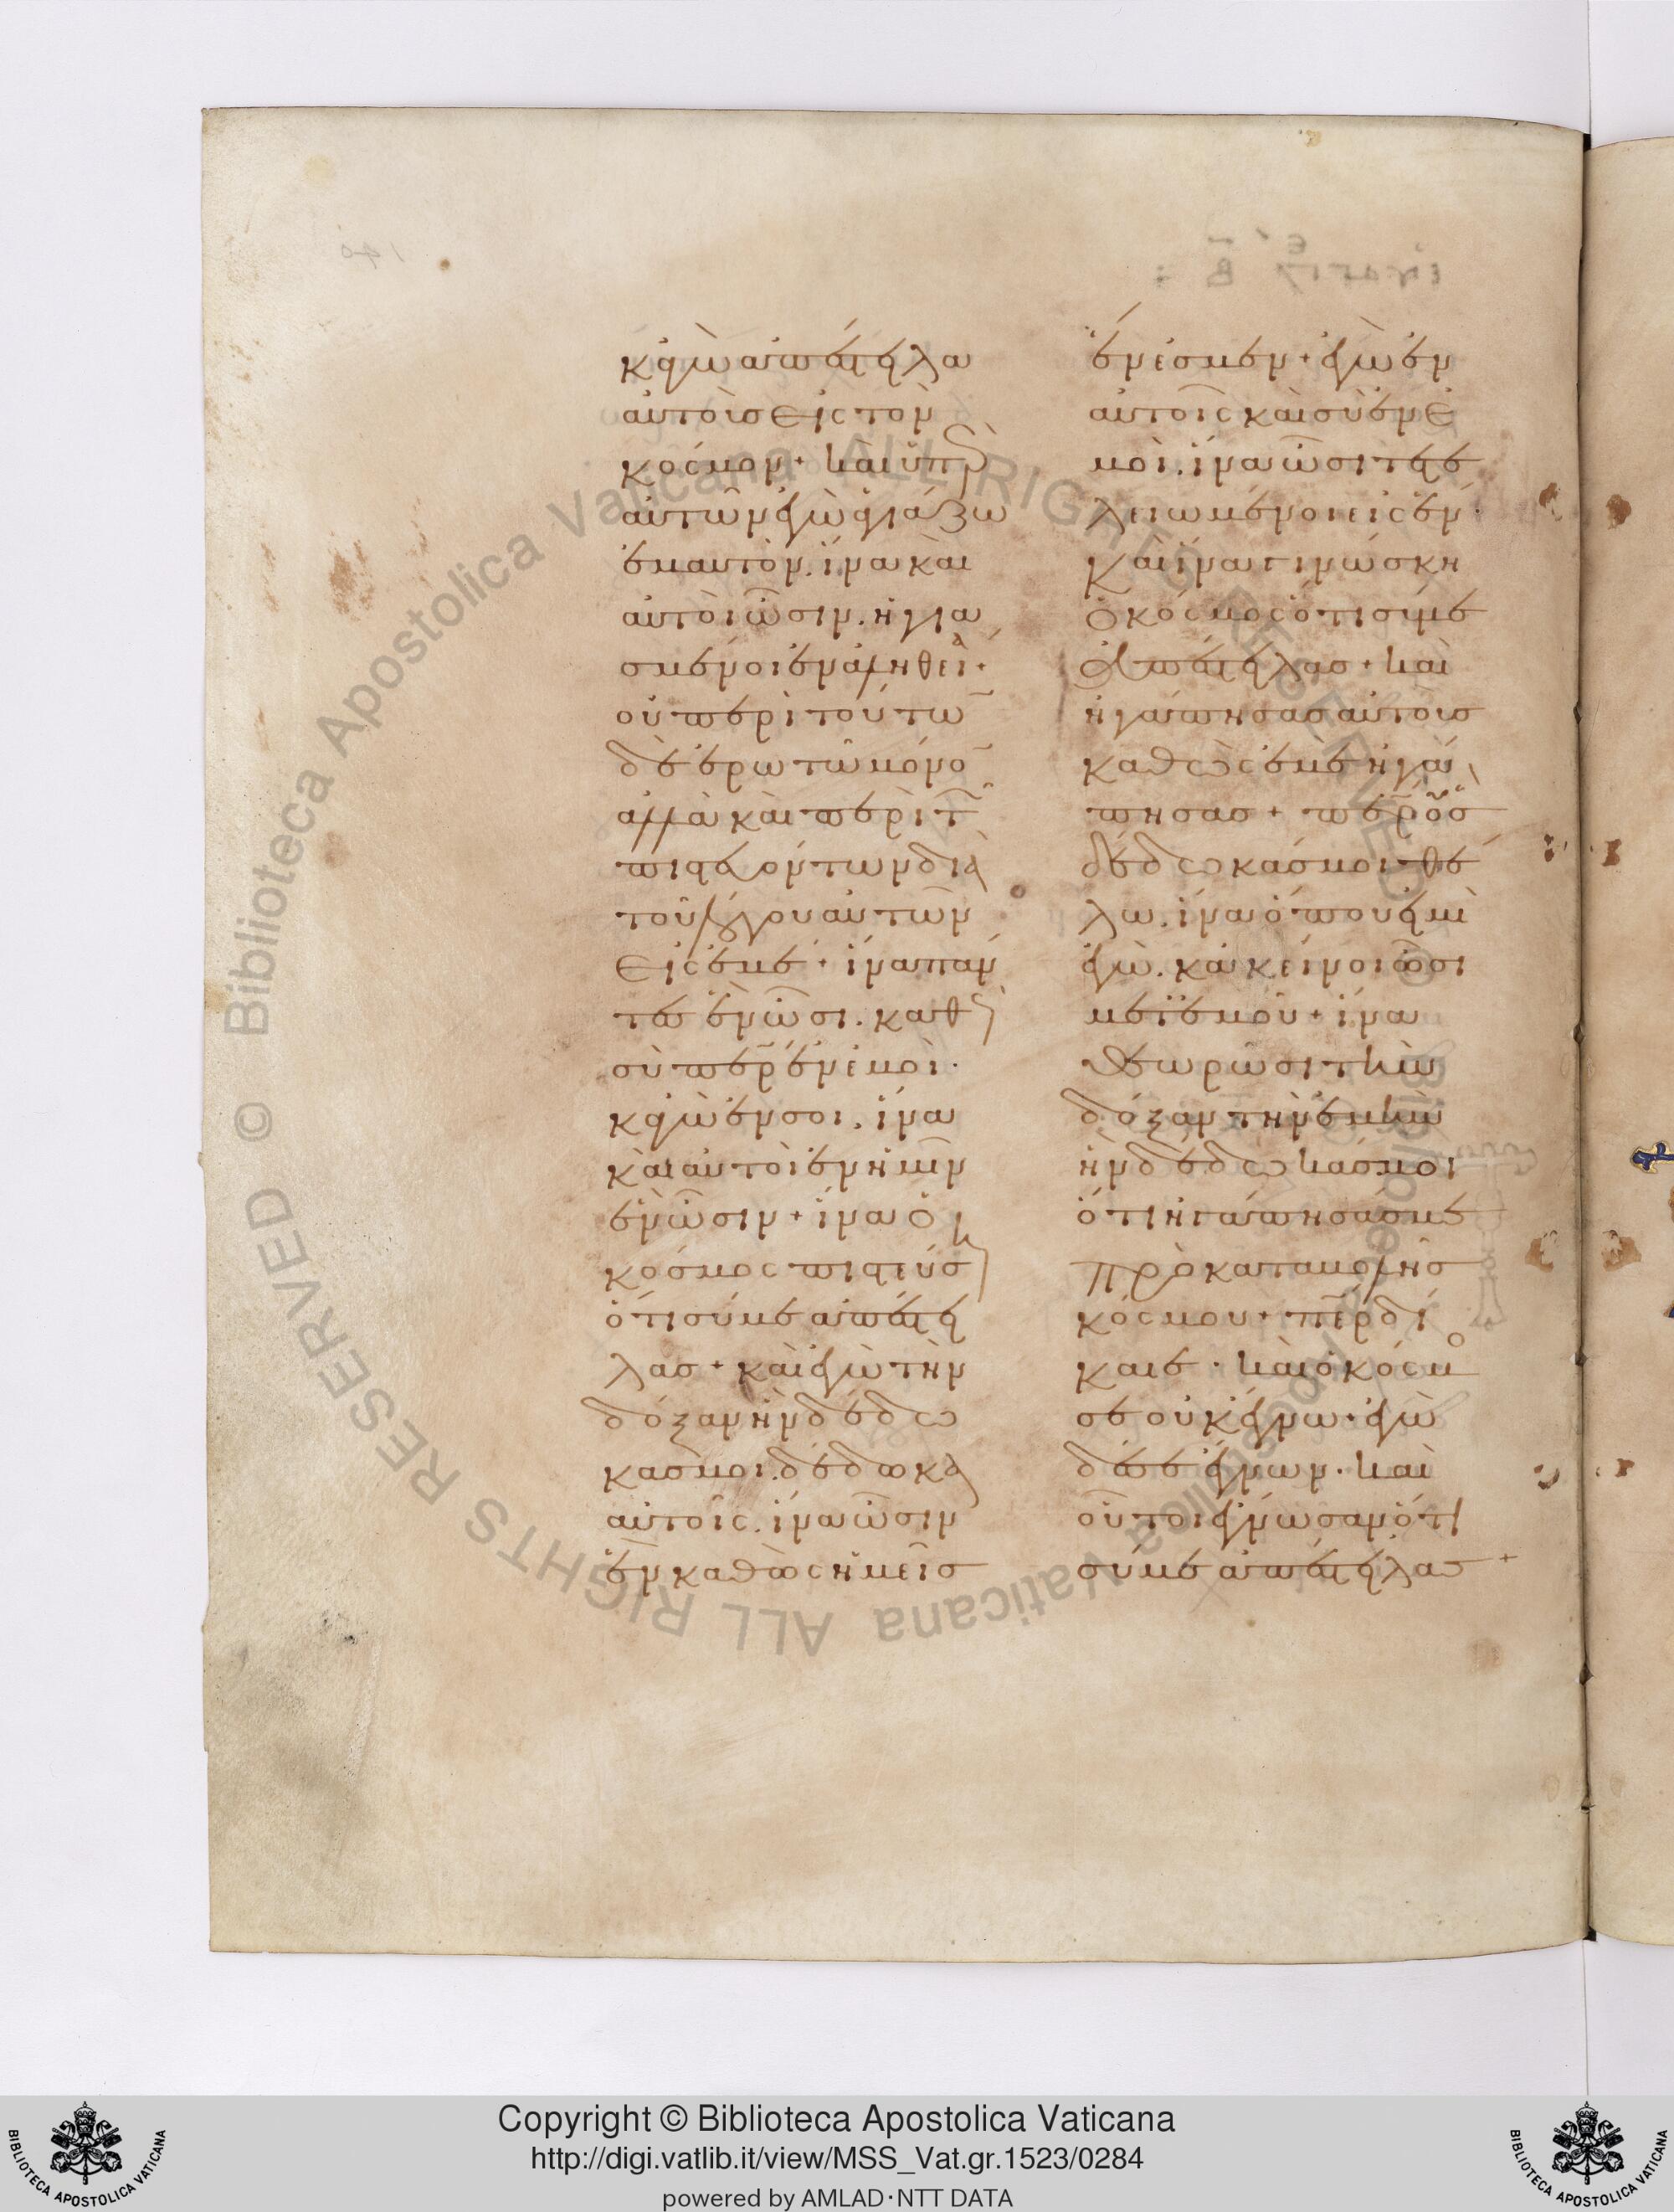 κἀγὼ ἀπέστειλα
αὐτοὺσ εἰς τὸν
κόσμον + καὶ ὑπὲρ
αὐτῶν ἐγὼ ἁγιάζω
ἐμαυτὸν. ἵνα καὶ
αὐτοὶ ὦσιν. ἡγια
σμένοι ἐν ἀληθεία +
οὐ περὶ τούτων
δὲ ἐρωτῶ μόνον
ἀλλὰ καὶ περὶ τῶν
πιστευόντων διὰ
τοῦ λόγου αὐτῶν
εἰς ἐμέ + ἵνα πάν
τες ἓν ὦσι. καθὼς
σὺ περ ἐν ἐμοὶ.
κἀγὼ ἐν σοι. ἵνα
καὶ αὐτοὶ ἐν ἡμῖν
ἓν ὦσιν + ἵνα ὁ
κόσμος πιστεύση
ὅτι σύ με ἀπέστει
λασ + καὶ ἐγὼ τὴν
δόξαν ἣν δέδω
κασ μοι. δέδωκα
αὐτοῖς. ἵνα ὦσιν
ἓν καθὼς ἡμεῖσ
ἕν ἐσμεν + ἐγὼ ἐν
αὐτοῖς καὶ σὺ ἐν ἐ
μοὶ. ἵνα ὦσι τετε
λειωμένοι εἰς ἕν.
καὶ ἵνα γινώσκη
ὁ κόσμος ὅτι σύ με
ἀπέστειλασ + καὶ
ἠγάπησασ αὐτοὺσ
καθὼς ἐμὲ ἠγά
πησασ + περ οὓσ
δέδωκάσ μοι θέ
λω. ἵνα ὅπου εἰμὶ
ἐγὼ. κἀκεῖνοι ὦσι
μετ ἐμοῦ + ἵνα
θεωρῶσι τὴν
δόξαν τὴν ἐμὴν
ἣν δέδωκάσ μοι
ὅτι ἠγάπησάσ με
πρὸ καταβολῆσ
κόσμου + περ δί
καιε. καὶ ὁ κόσμο
σε οὐκ ἔγνω. ἐγὼ
δέ σε ἔγνων. καὶ
οὗτοι ἔγνωσαν ὅτι
σύ με ἀπέστειλασ +
Copyright © Biblioteca Apostolica Vaticana
http://digi.vatlib.it/view/MSS_Vat.gr.1523/0284
powered by AMLAD·NTT DATA
BIBLIOTECA APOSTOLICA VATICANA
BIBLIOTECA APOSTOLICA VATICANA
© Biblioteca Apostolica Vaticana ALL RIGHTS RESERVED
© Biblioteca Apostolica Vaticana ALL RIGHTS RESERVED